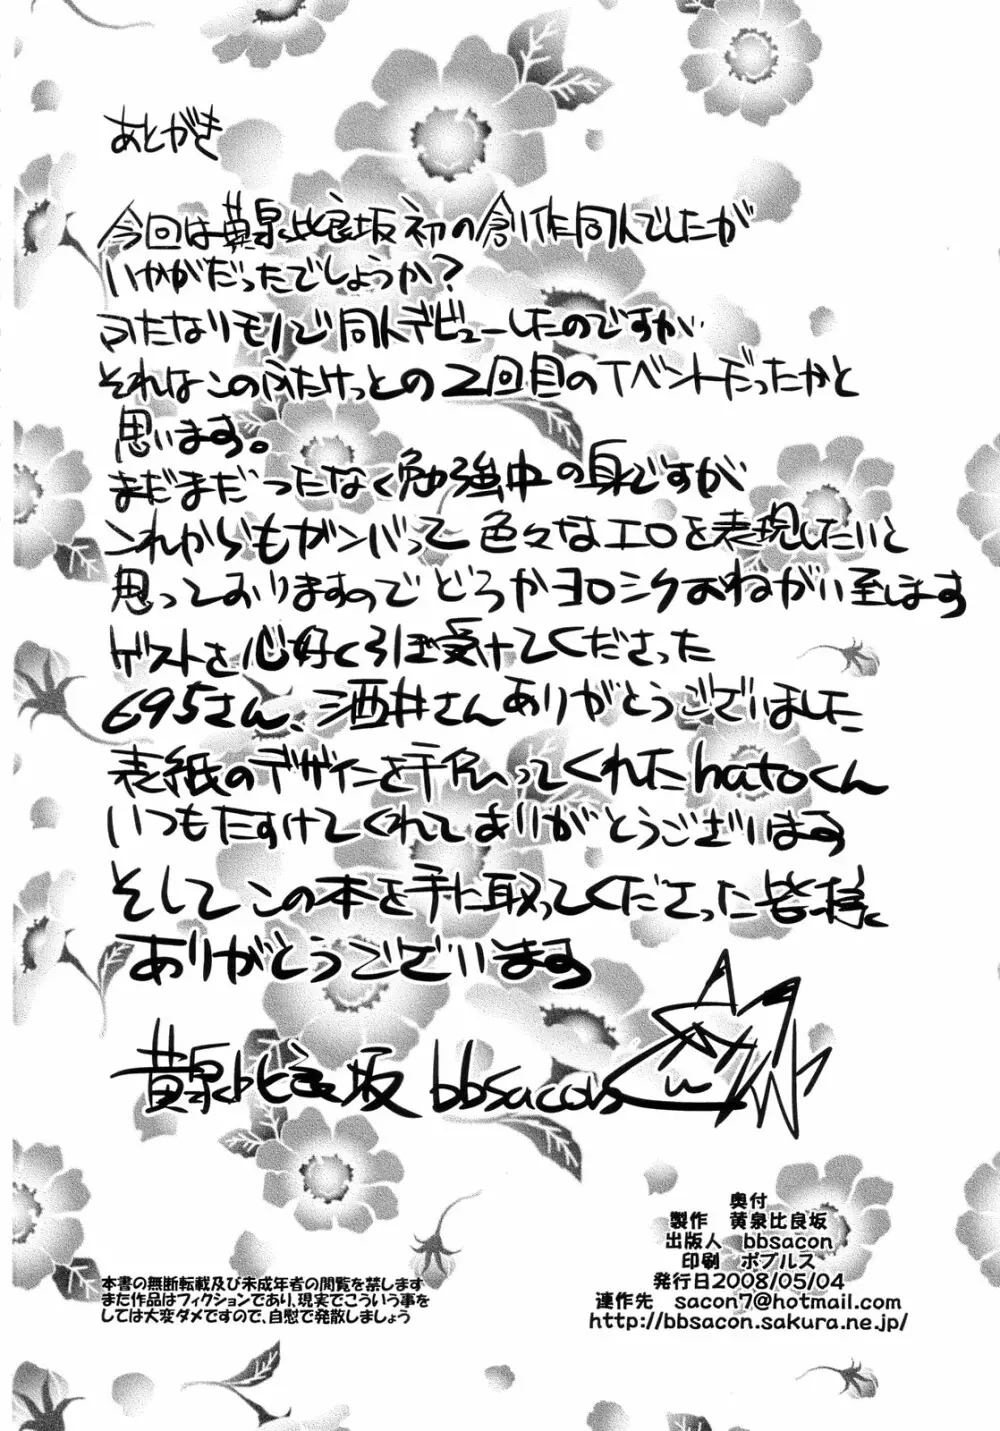 あとがき
今回は黄泉比良坂初の創作同人でしたが
いかがだったでしょうか？
ふたなりモノで同人デビューしたのですが
それはこのふたけっとの2回目のイベントだったかと
思います。
まだまだつたなく勉強中の身ですが
これからもガンバって色々なエロを表現したいと
思っておりますのでどうかヨロシクおねがい致します
ゲストを心好くひき受けてくださった
695さん、酒井さんありがとうございました
表紙のデザインを手伝ってくれたhatoくん
いつもたすけてくれてありがとうございます
そしてこの本を手に取ってくださった皆様に
ありがとうございます
黄泉比良坂 bbsacon
奥付
製作 黄泉比良坂
出版人 bbsacon
印刷 ポプルス
発行日2008/05/04
連作先 sacon7@hotmail.com
http://bbsacon.sakura.ne.jp/
本書の無断転載及び未成年者の閲覧を禁します
また作品はフィクションであり、現実でこういう事を
しては大変ダメですので、自慰で発散しましょう